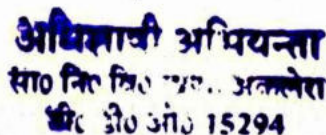 अधिशाषी अभियन्ता
सा० नि० वि० अकलेरा
डी० डी० ओ० 15294